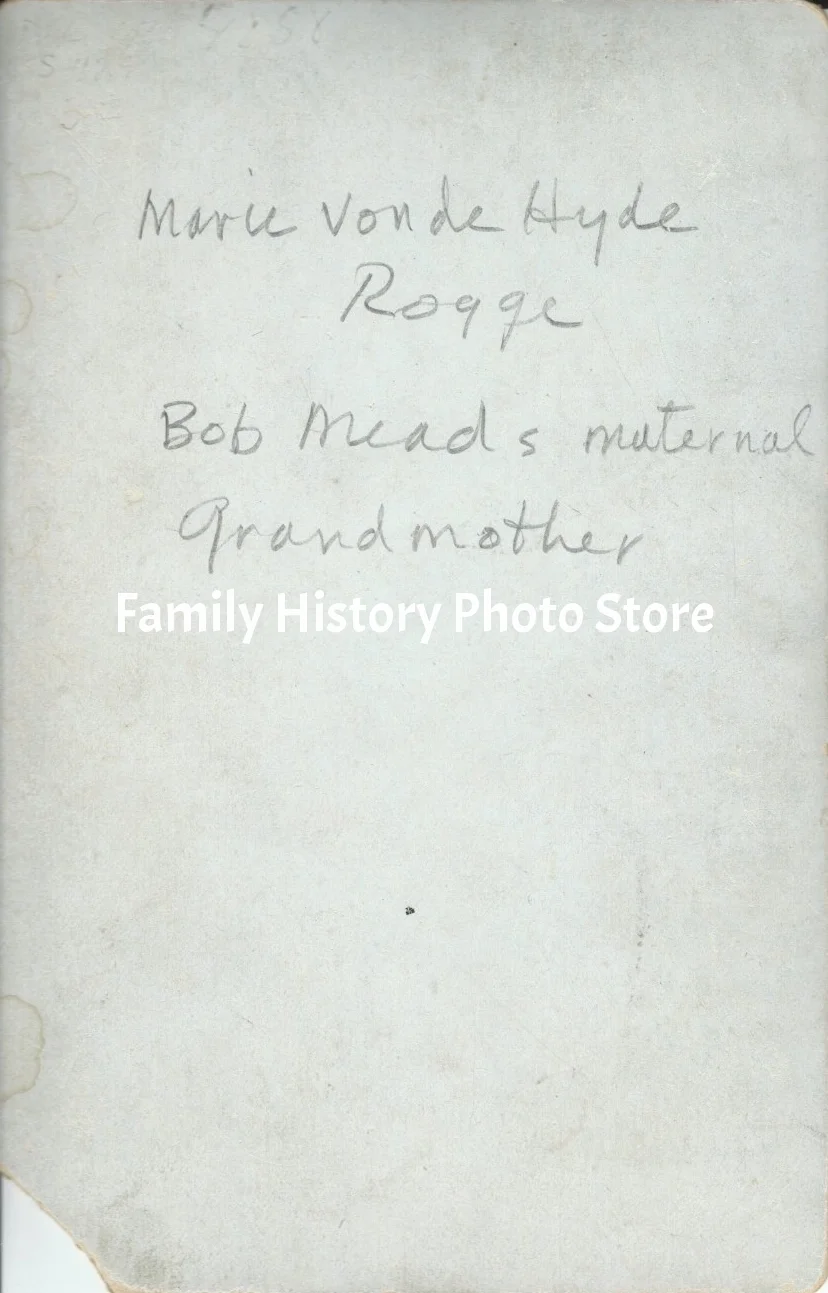 Marie Von de Hyde
Rogge
Bob Mead s maternal
Grandmother
Family History Photo Store